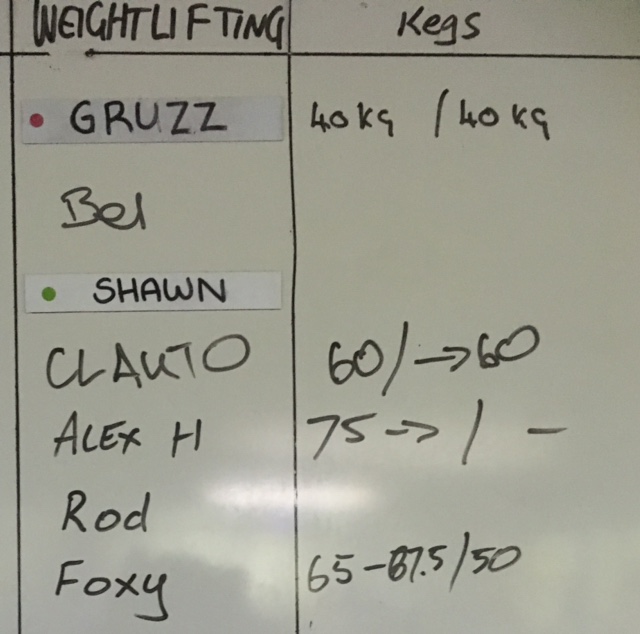 WEIGHTLIFTING Kegs
GRUZZ 40kg / 40kg
Bel
SHAWN
CLAUTO 60/→60
ALEX H 75→ / –
Rod
Foxy 65-67.5/50